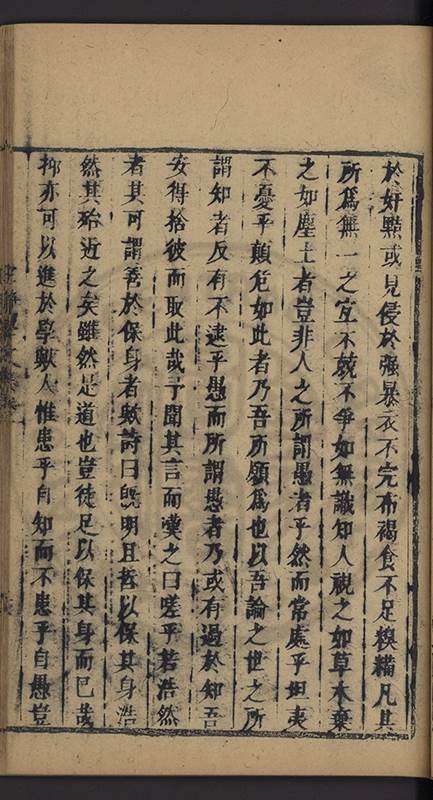 於奸黠或見侵於强暴衣不完布褐食不足糗糒凡其
所為無一之宜不兢不爭如無識知人視之如草木棄
之如塵土者豈非人之所謂愚者乎然而常處乎坦夷
不憂乎顛危如此者乃吾所願為也以吾論之世之所
謂知者反有不逮乎愚而所謂愚者乃或有過於知吾
安得捨彼而取此哉予聞其言而嘆之曰嗟乎若浩然
者其可謂善於保身者歟詩曰旣明且哲以保其身浩
然其殆近之矣雖然是道也豈徒足以保其身而已哉
抑亦可以進於學歟人惟患乎自知而不患乎自愚豈